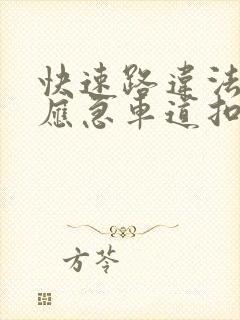 快速路違法
應急車道扣
方苓